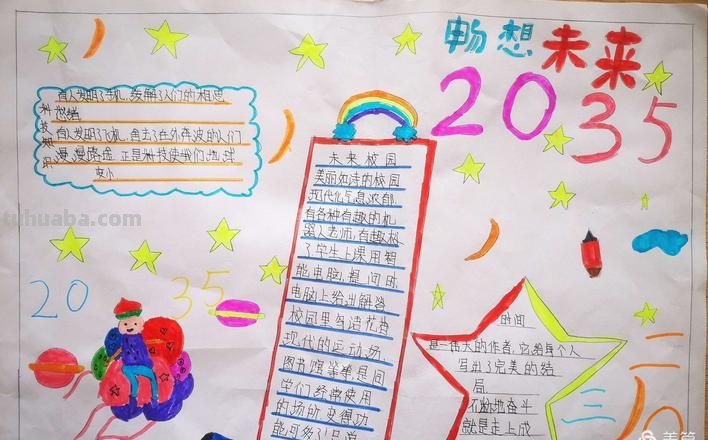 畅想未来
2035
有人发明了手机,缓解了人们的相思
愁绪
科技知识
有人发明了飞机,免去了在外奔波的人们
漫漫路途 正是科技使我们地球
变小
未来校园
美丽如诗的校园
现代化气息浓郁
有各种有趣的机
器人老师,有趣极
了学生上课用智
能电脑,提问时
电脑上给出解答
校园里鸟语花香
现代的运动场,
图书馆等等是同
学们经常使用
的场所 变得功
能可多了
2035
时间
是一伟大的作者,它给每个人
写出了完美的结
局
不断地奋斗
就是走上成
tuhuaba.com
美篇